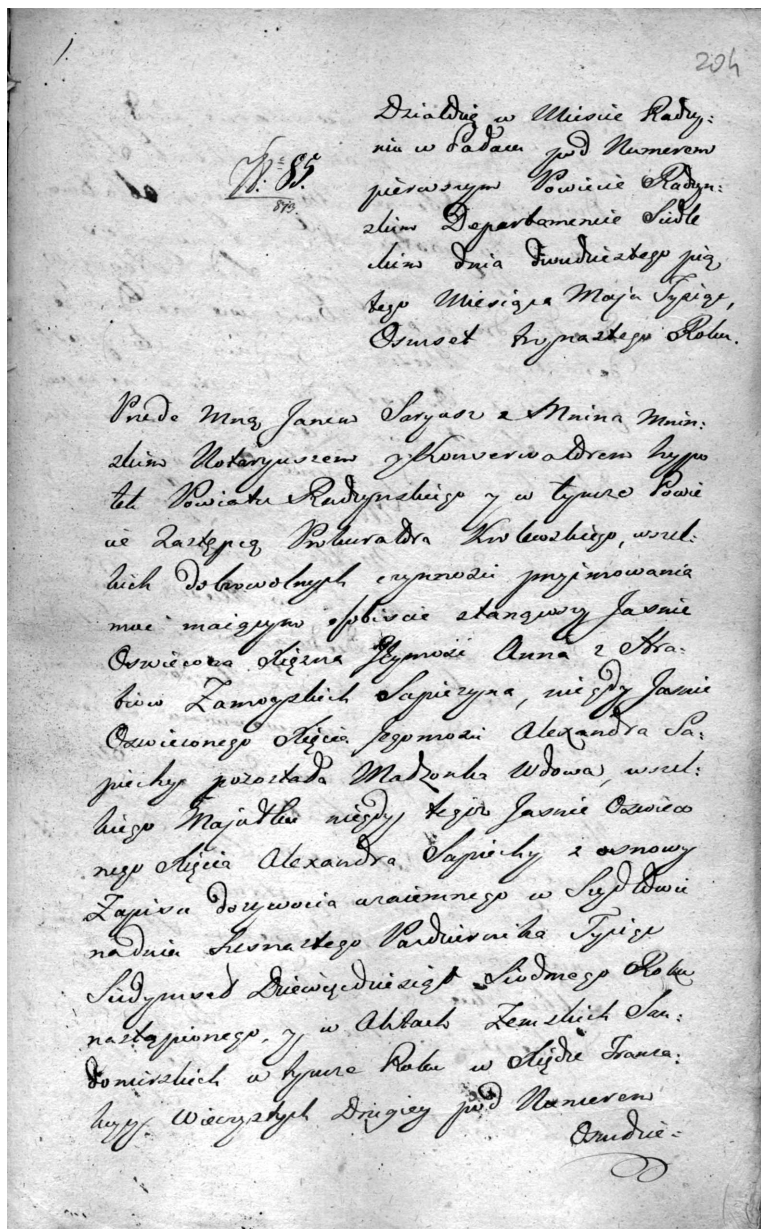 1.
204
Działo się w Mieście Radzy-
niu w Pałacu pod Numerem
N: 85.
pierwszym Powiecie Radzyn-
813.
skim Departamencie Siedle
ckim dnia dwudziestego pią
tego Miesiąca Maja Tysiąc,
Osmset trzynastego Roku.
Przede Mną Janem Saryusz z Mnina Mnin-
skim Notaryuszem y Konserwatorem hypo
tek Powiatu Radzynskiego y w tymże Powie
cie Zastępcą Prokuratora Krolewskiego, wszel-
kich dobrowolnych czynnosci przyimowania
moc maiącym osobiscie stanąwszy Jasnie
Oswiecona Xięzna Jeymość Anna z Hra-
biow Zamoyskich Sapiezyna, niegdy Jasnie
Oswieconego Xięcia Jegomosci Alexandra Sa-
piehy pozostała Małzonka Wdowa, wszel-
kiego Majątku niegdy tegoż Jasnie Oswieco
nego Xięcia Alexandra Sapiehy z osnowy
Zapisu dozywocia wzaiemnego w Szydłowcu
na dniu Szesnastego Pazdziernika Tysiąc
Siedymset Dziewięćdziesiąt Siodmego Roku
nastąpionego, y w Aktach Zemskich San-
domirskich w tymze Roku w Xiędze Transa-
kcyi Wieczystych Drugiey pod Numerem
Osmdzie-